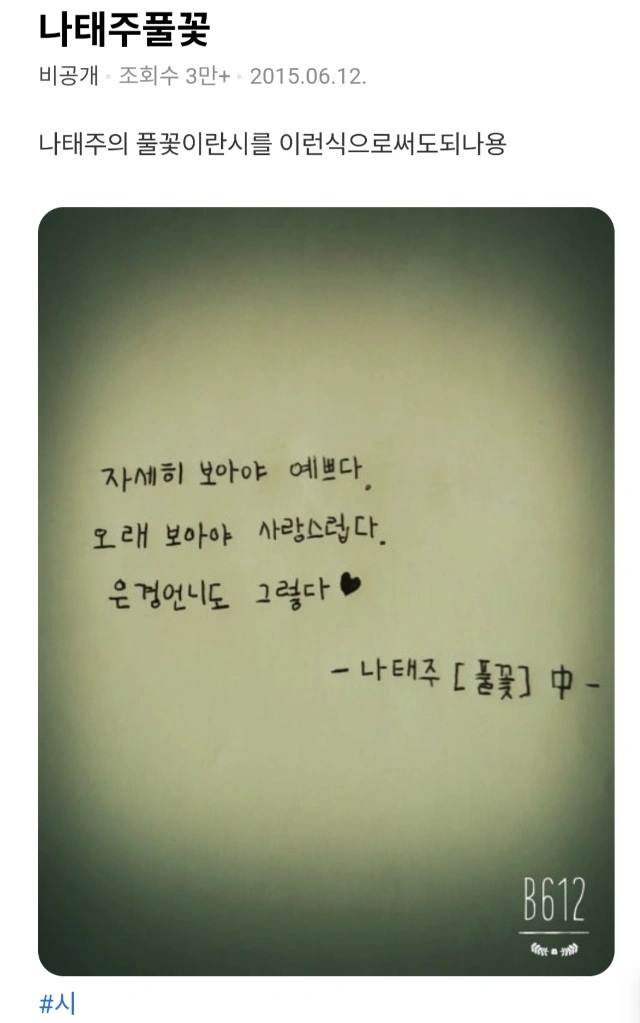 나태주풀꽃
비공개 · 조회수 3만+ · 2015.06.12.
나태주의 풀꽃이란시를 이런식으로써도되나용
자세히 보아야 예쁘다.
오래 보아야 사랑스럽다.
은경언니도 그렇다♥
- 나태주 [풀꽃] 中 -
B612
#시